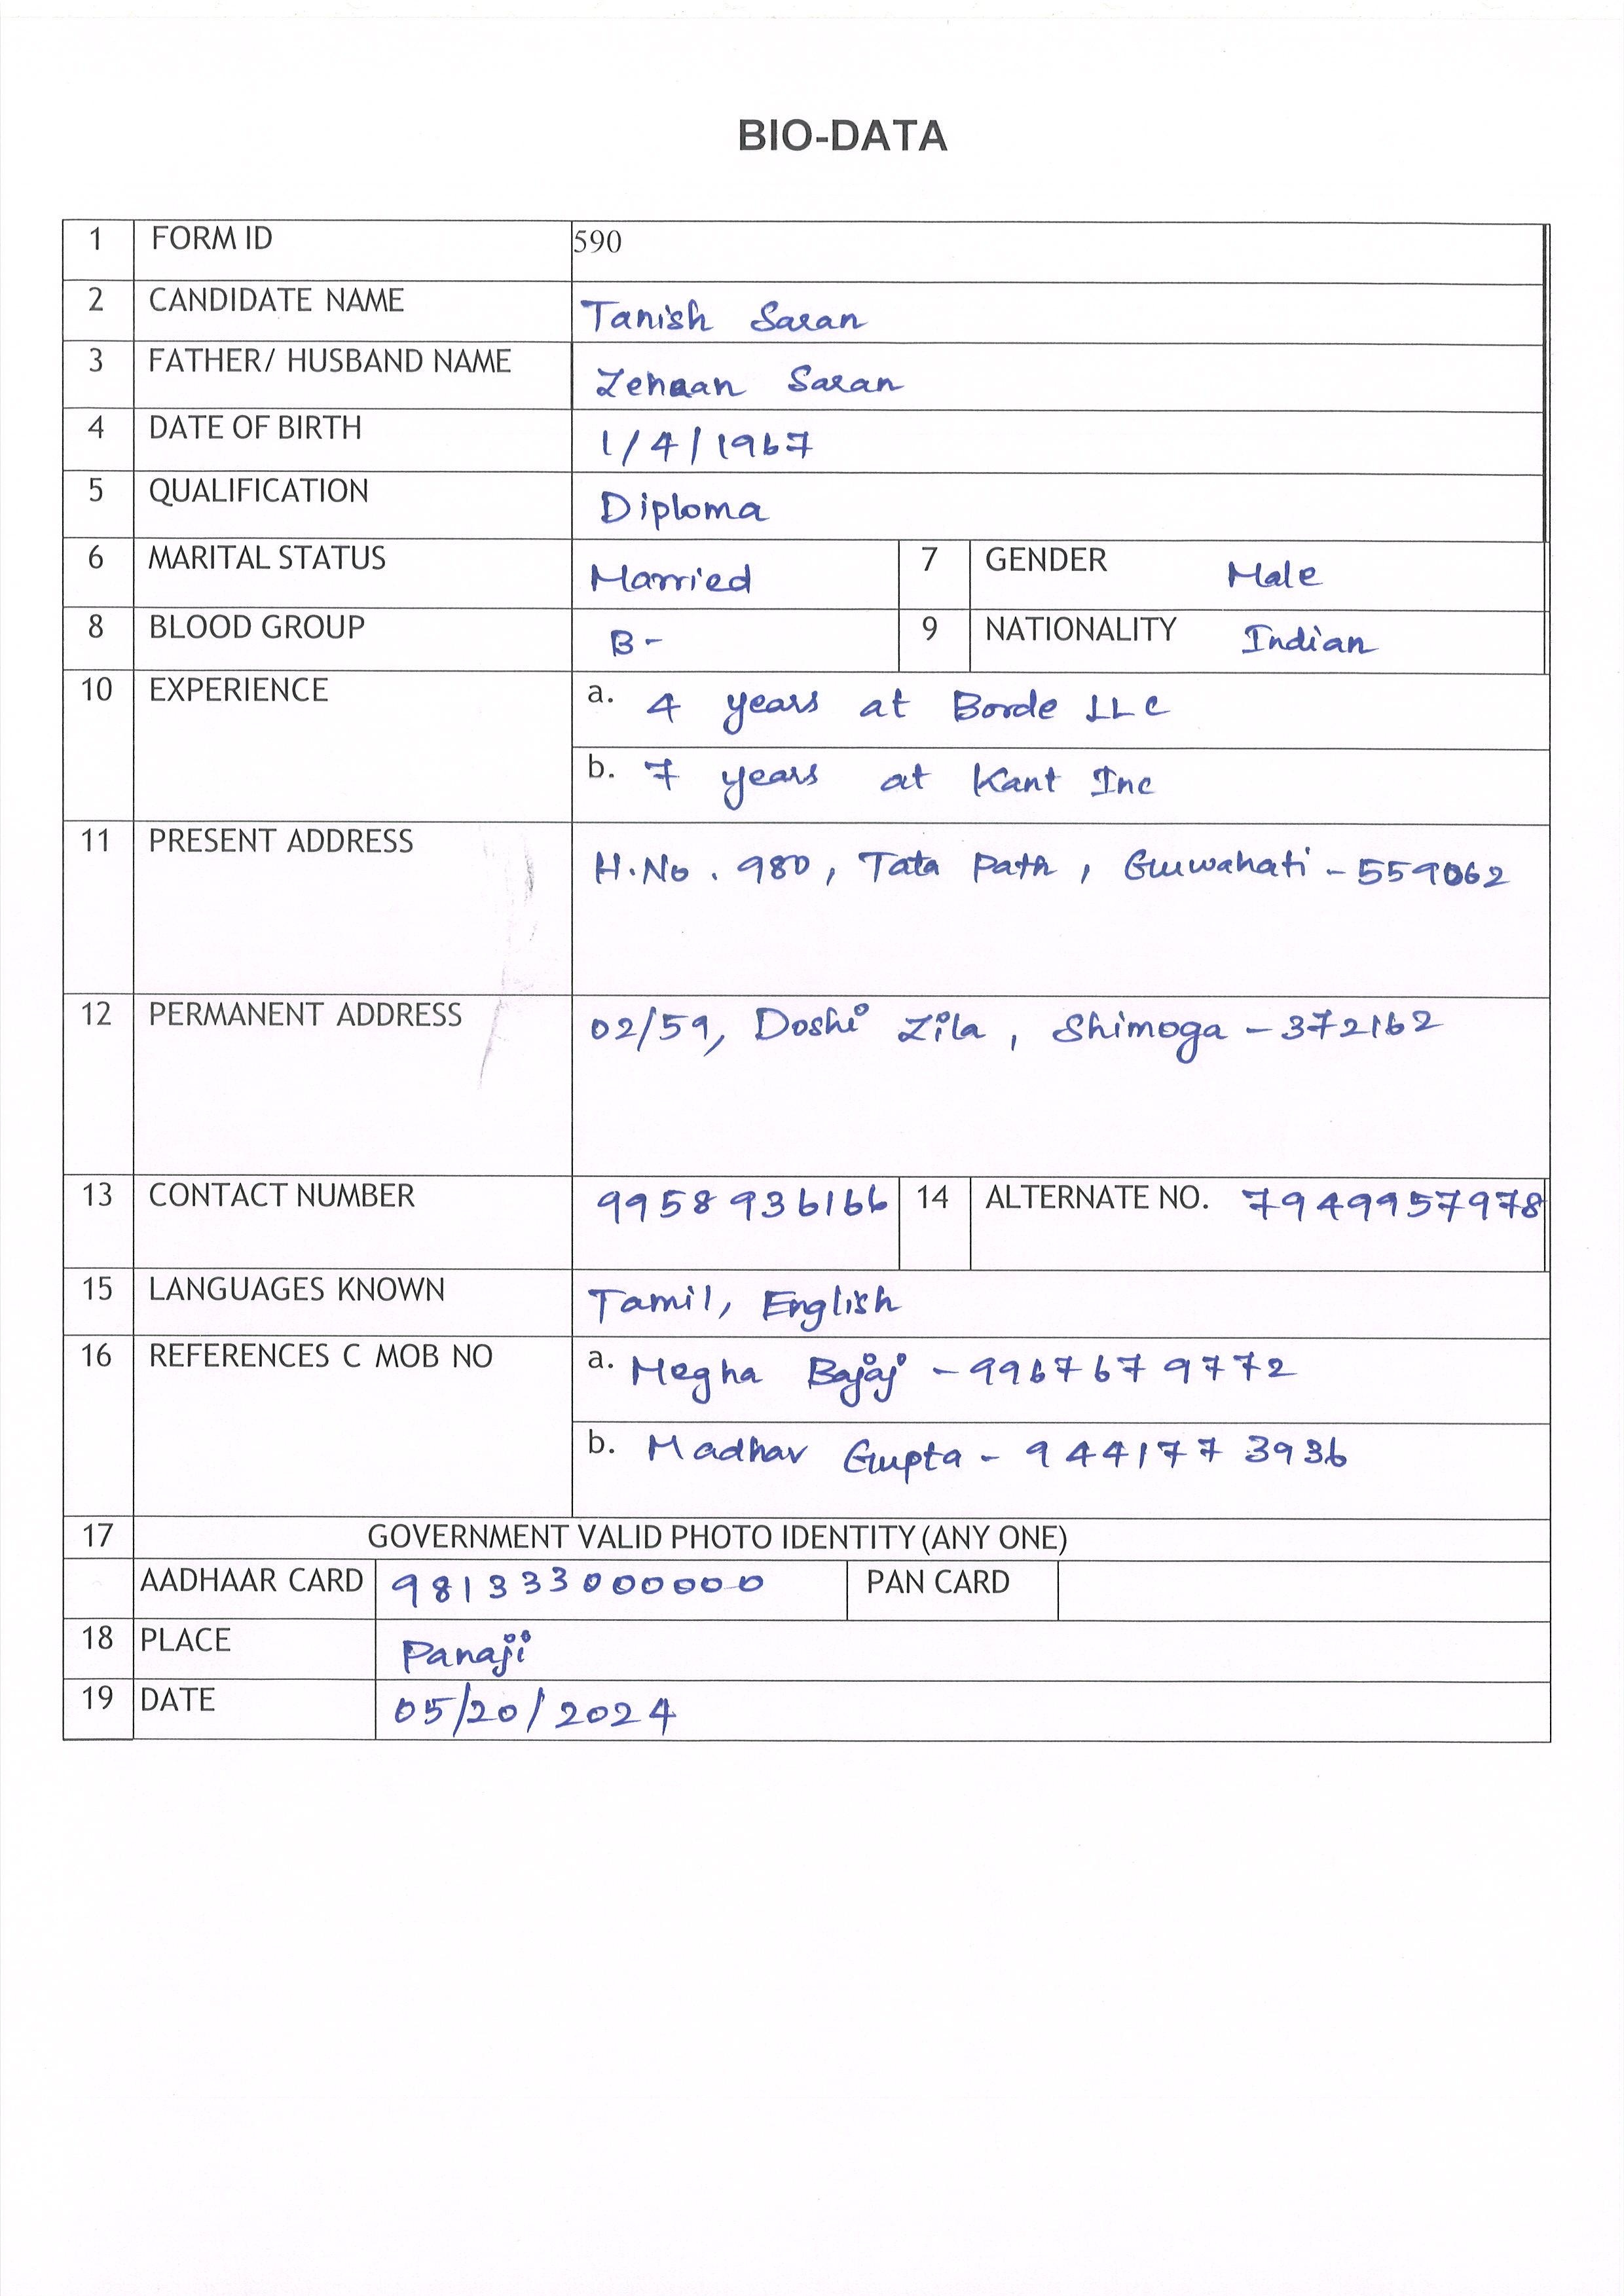 BIO-DATA
1 FORM ID 590
2 CANDIDATE NAME Tanish Saran
3 FATHER/ HUSBAND NAME Zehaan Saran
4 DATE OF BIRTH 1/4/1967
5 QUALIFICATION Diploma
6 MARITAL STATUS Married 7 GENDER Male
8 BLOOD GROUP B- 9 NATIONALITY Indian
10 EXPERIENCE a. 4 years at Borde LLC
b. 7 years at Kant Inc
11 PRESENT ADDRESS H.No. 980, Tata Path, Guwahati - 559062
12 PERMANENT ADDRESS 02/59, Doshi Zila, Shimoga - 372162
13 CONTACT NUMBER 9958936166 14 ALTERNATE NO. 7949957978
15 LANGUAGES KNOWN Tamil, English
16 REFERENCES C MOB NO a. Megha Bajaj - 9967679772
b. Madhav Gupta - 9441773936
17 GOVERNMENT VALID PHOTO IDENTITY (ANY ONE)
AADHAAR CARD 981333000000 PAN CARD
18 PLACE Panaji
19 DATE 05/20/2024